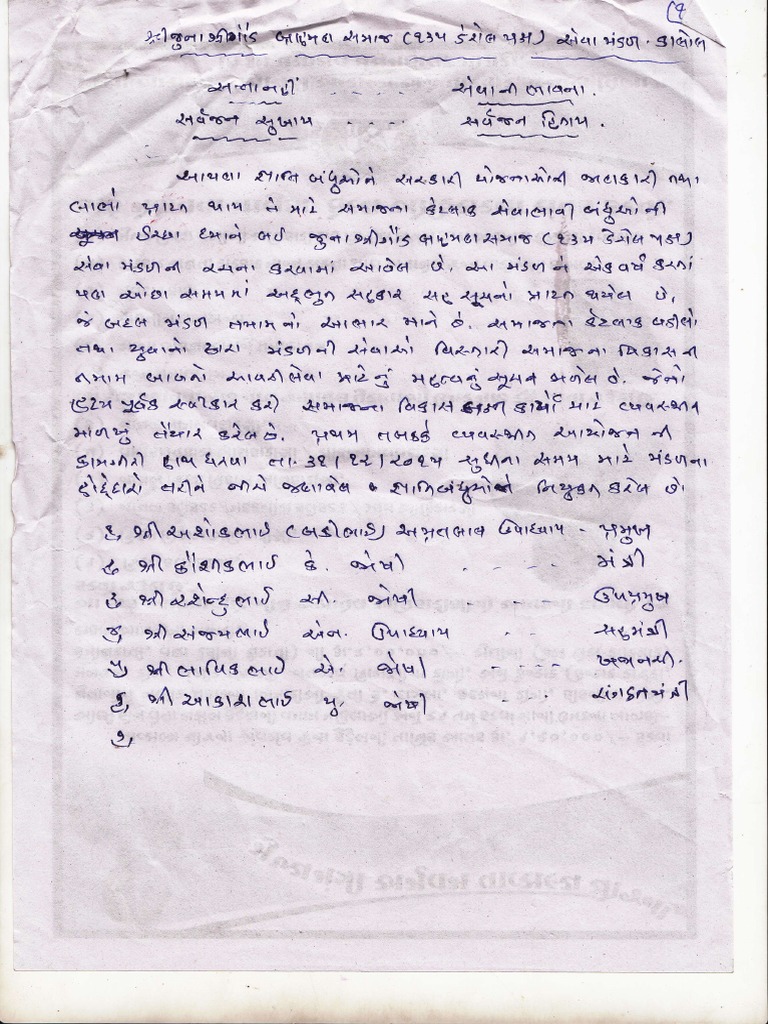 (૧
શ્રી જુના શ્રીગૌડ બ્રાહ્મણ સમાજ (૧૩૫ ડેરોલ પ્રથા) સેવા મંડળ. કાલોલ
સત્તા નહીં - - - - સેવાની ભાવના.
સર્વજન સુખાય - - - - સર્વજન હિતાય.
આપણા જ્ઞાતિ બંધુઓને સરકારી યોજનાઓની જાણકારી તથા
લાભો પ્રાપ્ત થાય તે માટે સમાજના કેટલાક સેવાભાવી બંધુઓની
ઈચ્છા ધ્યાને લઈ જુના શ્રીગૌડ બ્રાહ્મણ સમાજ (૧૩૫ ડેરોલ પ્રથા)
સેવા મંડળની રચના કરવામાં આવેલ છે. આ મંડળને એક વર્ષ કરતાં
પણ ઓછા સમયમાં અદ્ભુત સહકાર સહ સૂચનો પ્રાપ્ત થયેલ છે,
જે બદલ મંડળ તમામનો આભાર માને છે. સમાજના કેટલાક વડીલો
તથા યુવાનો દ્વારા મંડળની સેવાઓ વિસ્તારી સમાજના વિકાસની
તમામ બાબતો આવરી લેવા માટેનું મહત્વનું સૂચન મળેલ છે. જેનો
હૃદય પૂર્વક સ્વીકાર કરી સમાજના વિકાસ કાર્યો માટે વ્યવસ્થિત
માળખું તૈયાર કરેલ છે. પ્રથમ તબક્કે વ્યવસ્થિત આયોજન ની
કામગીરી હાથ ધરવા તા. ૩૧/૧૨/૨૦૧૫ સુધીના સમય માટે મંડળના
હોદ્દેદારો તરીકે નીચે જણાવેલ જ્ઞાતિબંધુઓને નિયુક્ત કરેલ છે.
૧, શ્રી અશોકભાઈ (બકીભાઈ) અમ્રતલાલ ઉપાધ્યાય - પ્રમુખ
૨, શ્રી કૌશીકભાઈ કે. જોષી - - - - મંત્રી
૩, શ્રી રશેન્દુભાઈ સી. જોષી - - - - ઉપપ્રમુખ
૪, શ્રી સંજયભાઈ એન. ઉપાધ્યાય - - સહમંત્રી
૫, શ્રી ભાવિકભાઈ એ. જોષી - - - - ખજાનચી.
૬, શ્રી આકાશભાઈ યુ. જોષી - - - સંગઠનમંત્રી
૭,